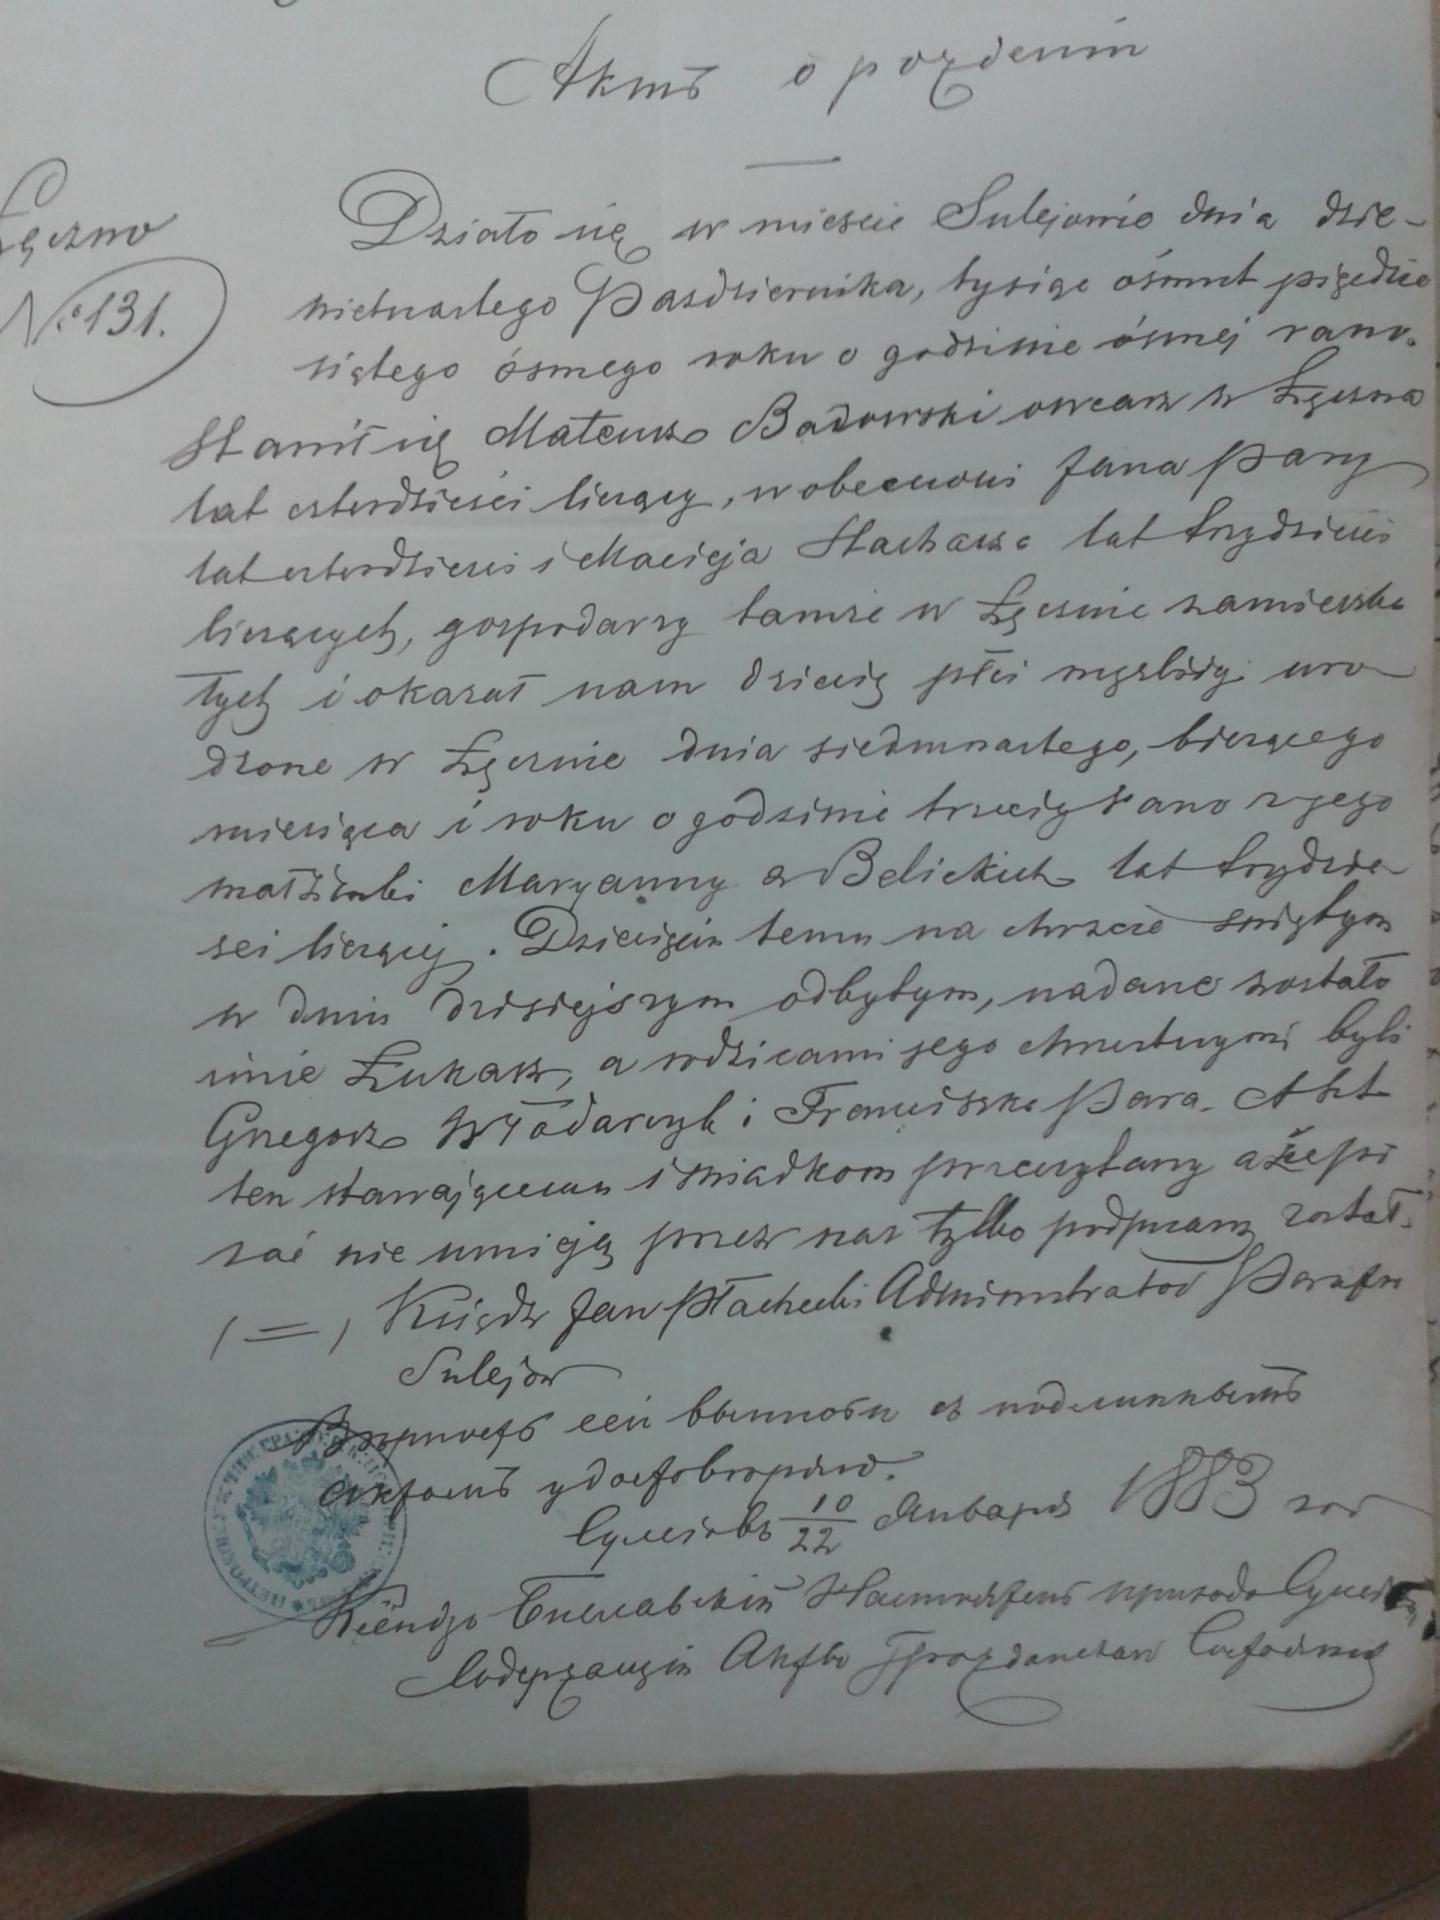 Актъ о рожденіи
Łęczno
№ 131.
Działo się w mieście Sulejowie dnia dzie-
więtnastego Pazdziernika, tysiąc ośmset pięćdzie
siątego ósmego roku o godzinie ósmej rano.
Stawił się Mateusz Badowski owczarz w Łęczna
lat czterdzieści liczący, w obecności Jana Pary
lat czterdzieści i Macieja Stachacza lat trzydzieści
liczących, gospodarzy tamże w Łęcznie zamieszka
łych i okazał nam dziecię płci męzkiéj uro
dzone w Łęcznie dnia siedmnastego, bieżącego
miesiąca i roku o godzinie trzeciéj rano z jego
małżonki Maryanny z Belickich lat trzydzie
sci liczącej. Dziecięciu temu na chrzcie świętym
w dniu dzisiejszym odbytym, nadane zostało
imie Łukasz, a rodzicami jego chrzestnymi byli
Grzegorz Włodarczyk i Franciszka Para. Akt
ten stawającemu i świadkom przeczytany a że pi
sać nie umieją przez nas tylko podpisany został.
/=/ Ksiądz Jan Płachecki Administrator Parafii
Sulejów
Вѣрность сей выписи съ подлиннымъ
актомъ удостовѣряю.
Сулеіовъ 10/22 Января 1883 год
Ксендзъ Настоятель прихода Сулеіовъ,
Содержащій Акты Гражданскаго Состоянія